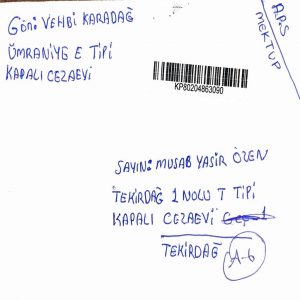 GÖN: VEHBİ KARADAĞ
ÜMRANİYE E TİPİ
KAPALI CEZAEVİ
APS
MEKTUP
KP80204863090
SAYIN: MUSAB YASİR ÖZEN
TEKİRDAĞ 1 NOLU T TİPİ
KAPALI CEZAEVİ
TEKİRDAĞ
A-6